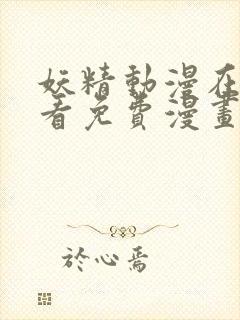 妖精動漫在
看免費漫畫
於心焉